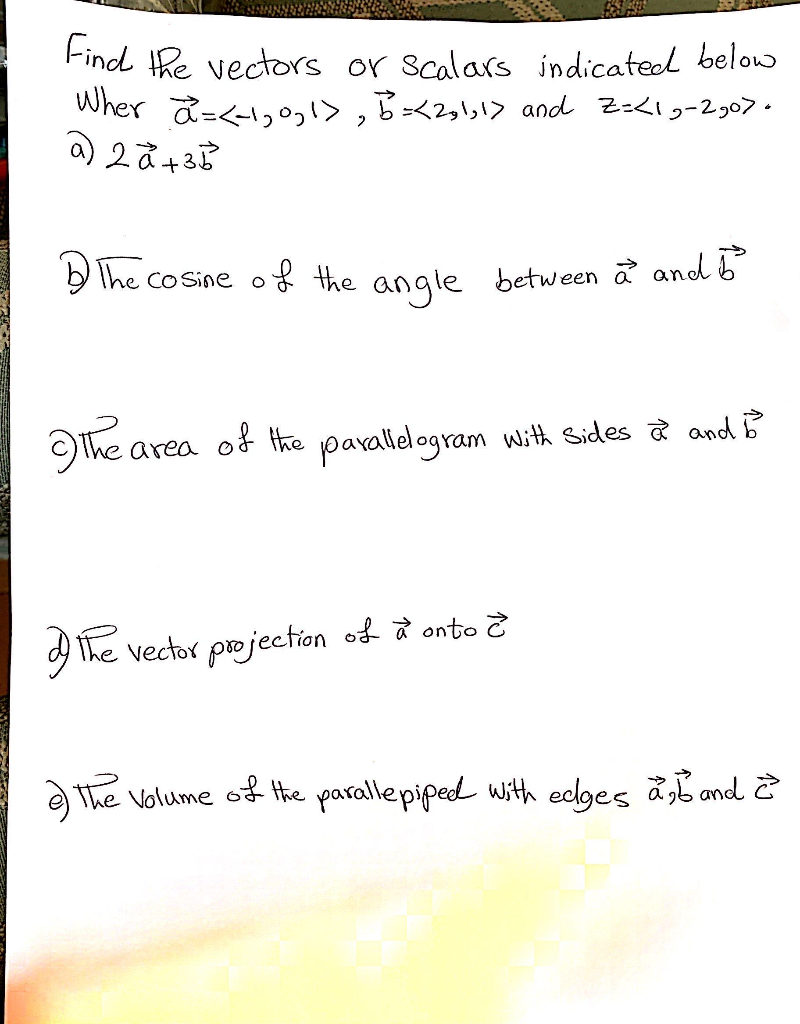 Find the vectors or Scalars indicated below
Wher a⃗=<-1,0,1> , b⃗=<2,1,1> and Z=<1,-2,0>.
a) 2a⃗+3b⃗
b) The cosine of the angle between a⃗ and b⃗
c) The area of the parallelogram with sides a⃗ and b⃗
d) The vector projection of a⃗ onto c⃗
e) The Volume of the parallepiped with edges a⃗,b⃗ and c⃗